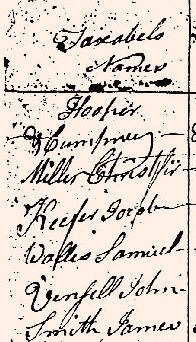 Taxabels
Names
Hooper
Humphrey
Miller Christ
Keefer Joseph
Walles Samuel
John
Smith James